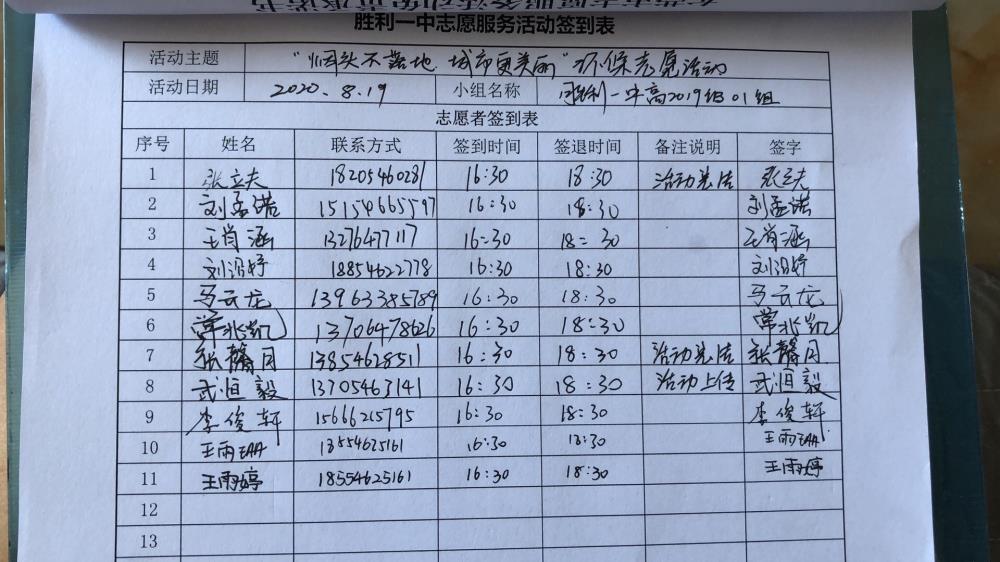 胜利一中志愿服务活动签到表
活动主题 “烟头不落地 城市更美丽”环保志愿活动
活动日期 2020.8.19 小组名称 胜利一中高2019级01组
志愿者签到表
序号 姓名 联系方式 签到时间 签退时间 备注说明 签字
1 张立夫 18205460281 16:30 18:30 活动总结 张立夫
2 刘孟诺 15154665597 16:30 18:30 刘孟诺
3 王肖涵 13276477117 16:30 18:30 王肖涵
4 刘沼婷 18854622778 16:30 18:30 刘沼婷
5 马云龙 13963385789 16:30 18:30 马云龙
6 常兆凯 13706478626 16:30 18:30 常兆凯
7 张馨月 13854628511 16:30 18:30 活动总结 张馨月
8 武恒毅 13705463141 16:30 18:30 活动上传 武恒毅
9 李俊轩 15666215795 16:30 18:30 李俊轩
10 王雨 18554625161 16:30 18:30 王雨
11 王雨婷 18554625161 16:30 18:30 王雨婷
12
13